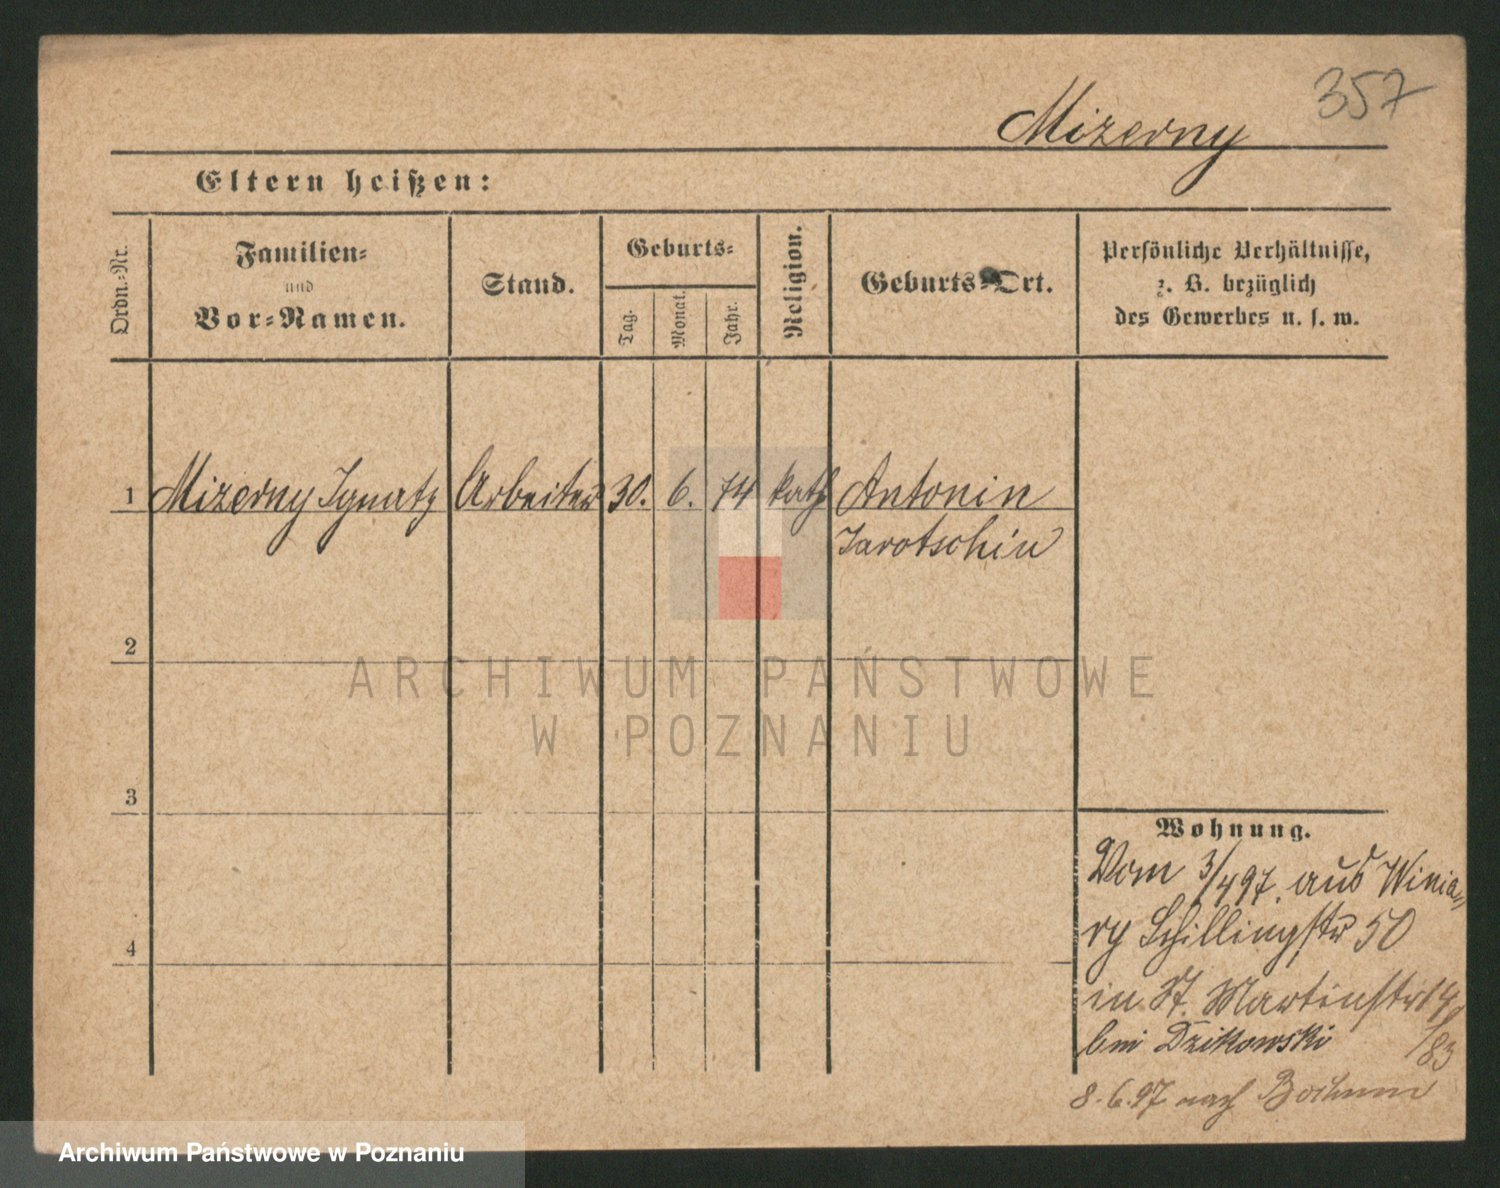 357
Mizerny
Eltern heißen:
Ordn.-Nr.
Familien-
und
Vor-Namen.
Stand.
Geburts-
Tag.
Monat.
Jahr.
Religion.
Geburts-Ort.
Persönliche Verhältnisse,
z. B. bezüglich
des Gewerbes u. s. w.
1 Mizerny Ignatz Arbeiter 30. 6. 74 kath Antonin
Jarotschin
2
ARCHIWUM PAŃSTWOWE
W POZNANIU
3
Wohnung.
Vom 3/4 97. aus Winia-
ry Schillingstr 50
4
in St. Martinstr
bei Dzikowski
8.6.97 nach Bochum
Archiwum Państwowe w Poznaniu